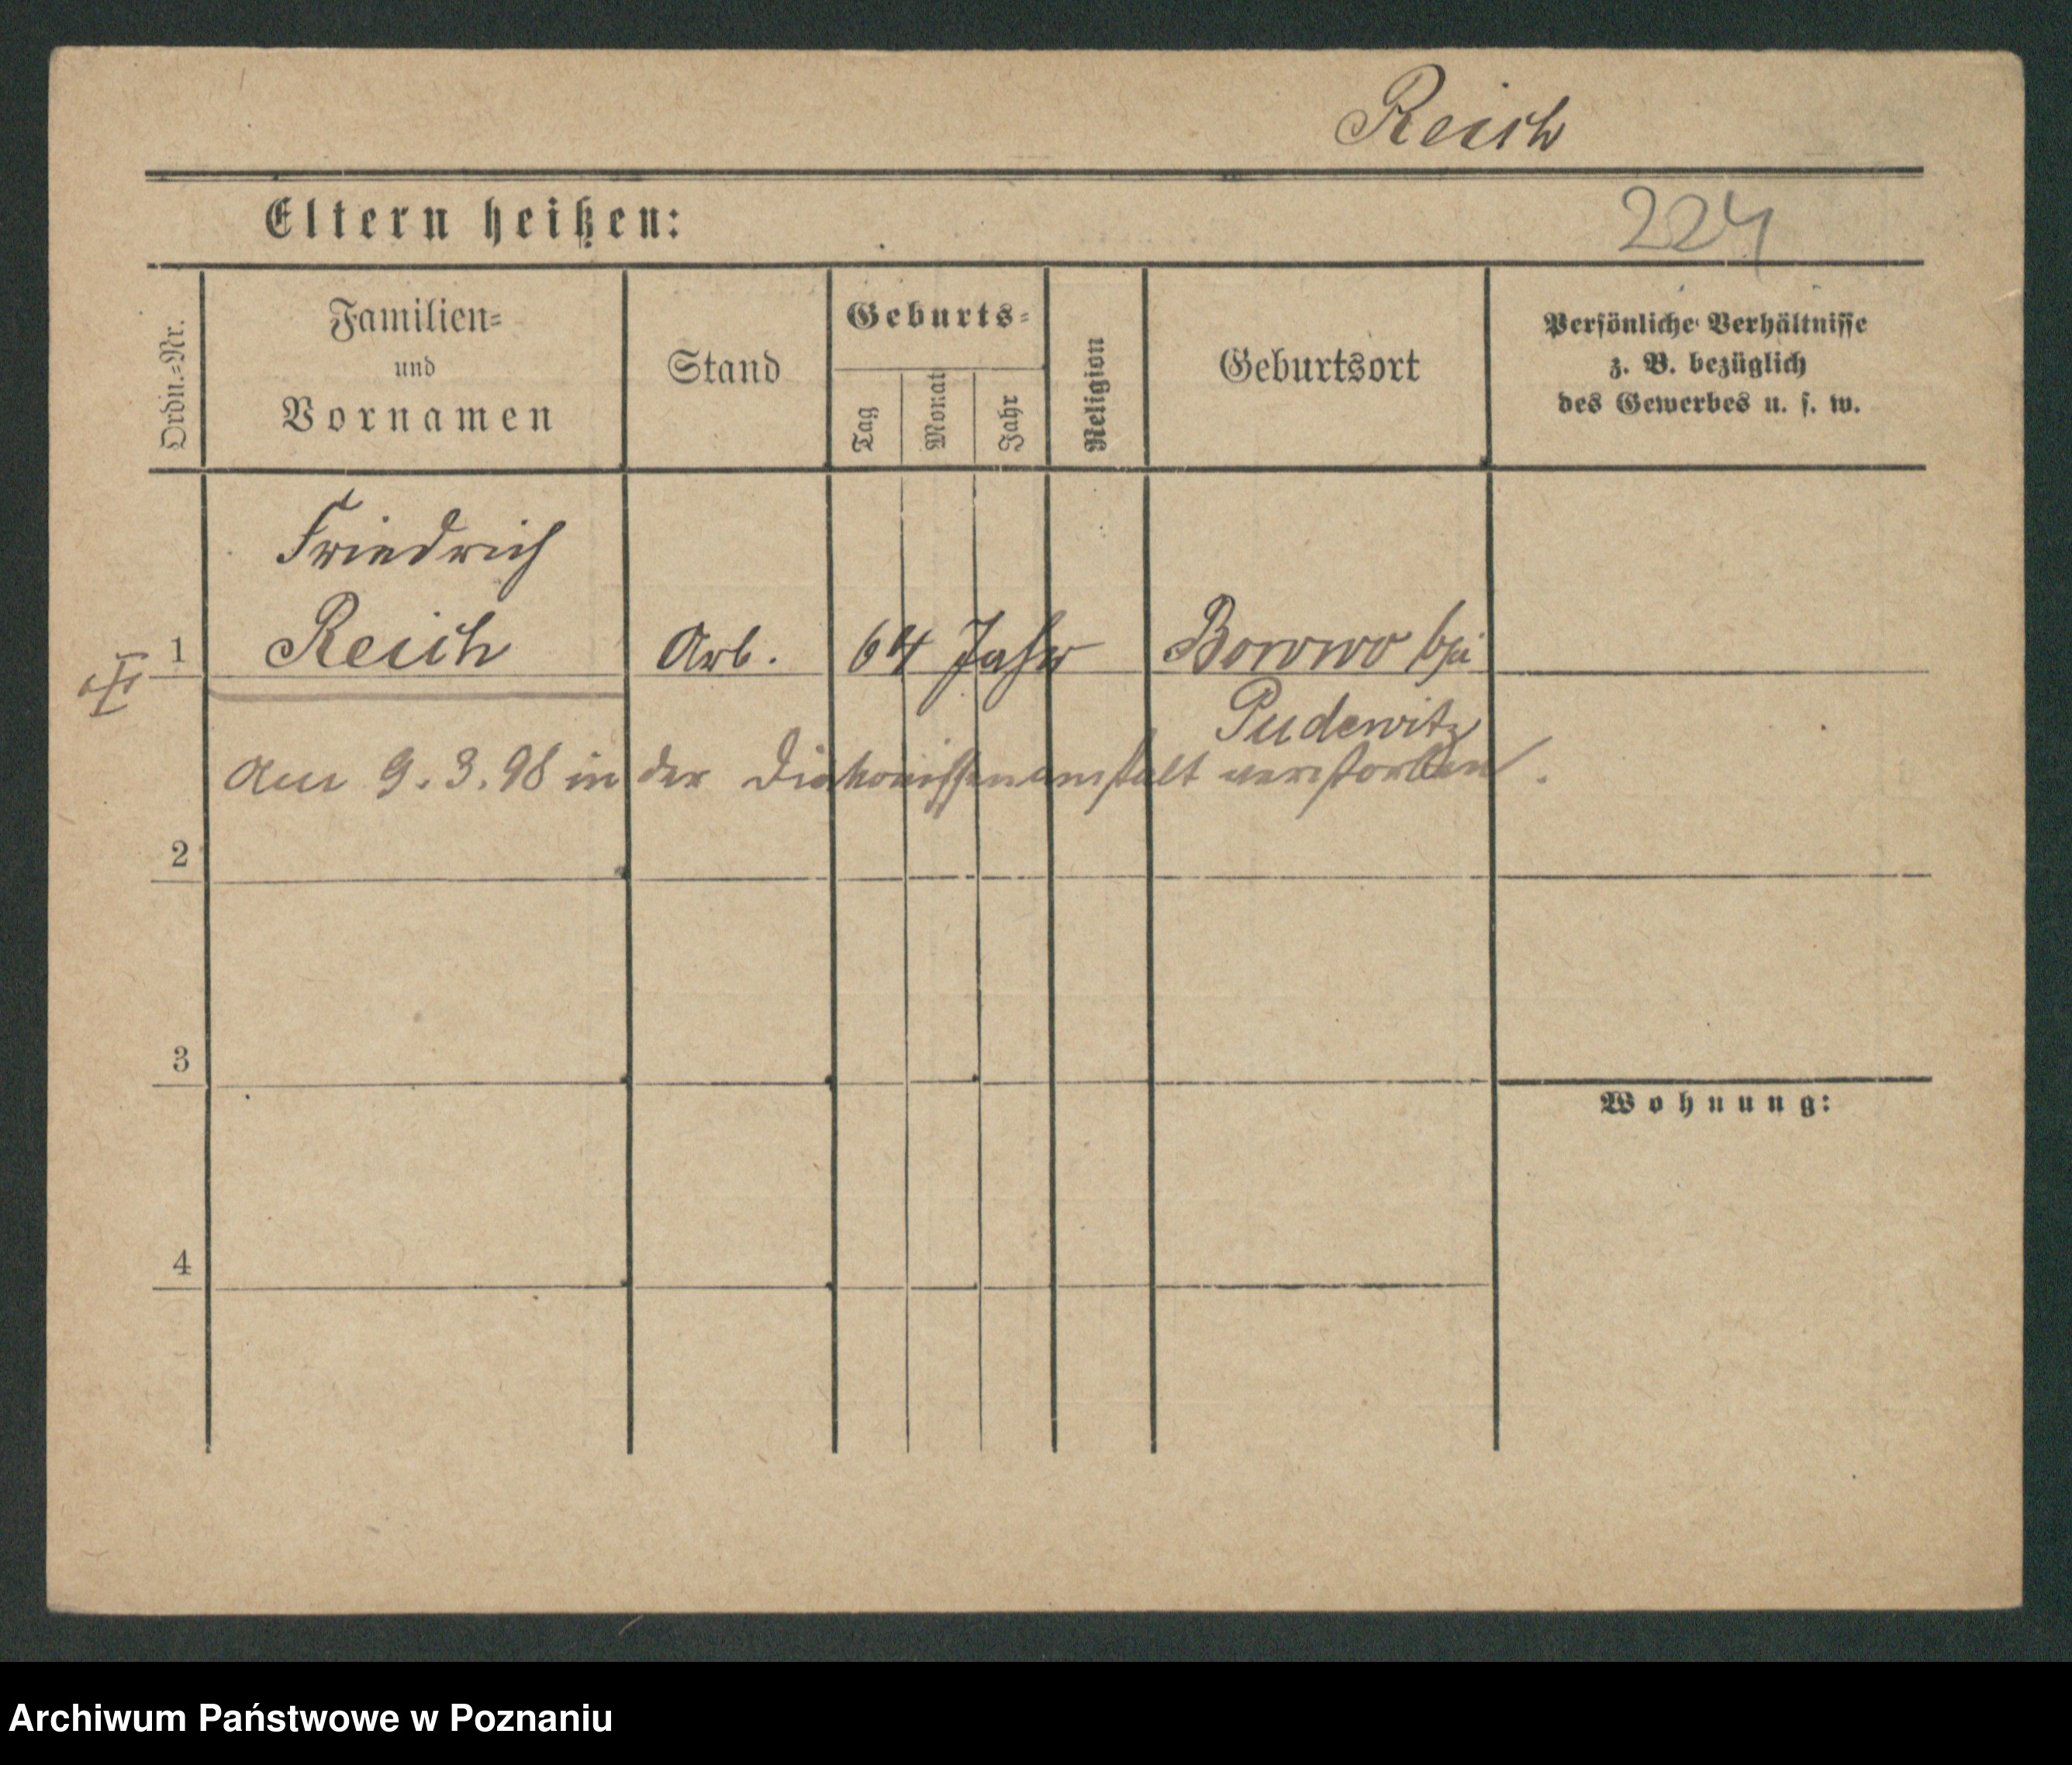 Reich
Eltern heißen:
224
Ordn.=Nr.
Familien=
und
Vornamen
Stand
Geburts=
Tag
Monat
Jahr
Religion
Geburtsort
Persönliche Verhältnisse
z. B. bezüglich
des Gewerbes u. s. w.
Friedrich
1 Reich Arb. 64 Jahr Borowo bei
Pudewitz
Am 9.3.98 in der Diakonissenanstalt verstorben.
2
3
Wohnung:
4
Archiwum Państwowe w Poznaniu